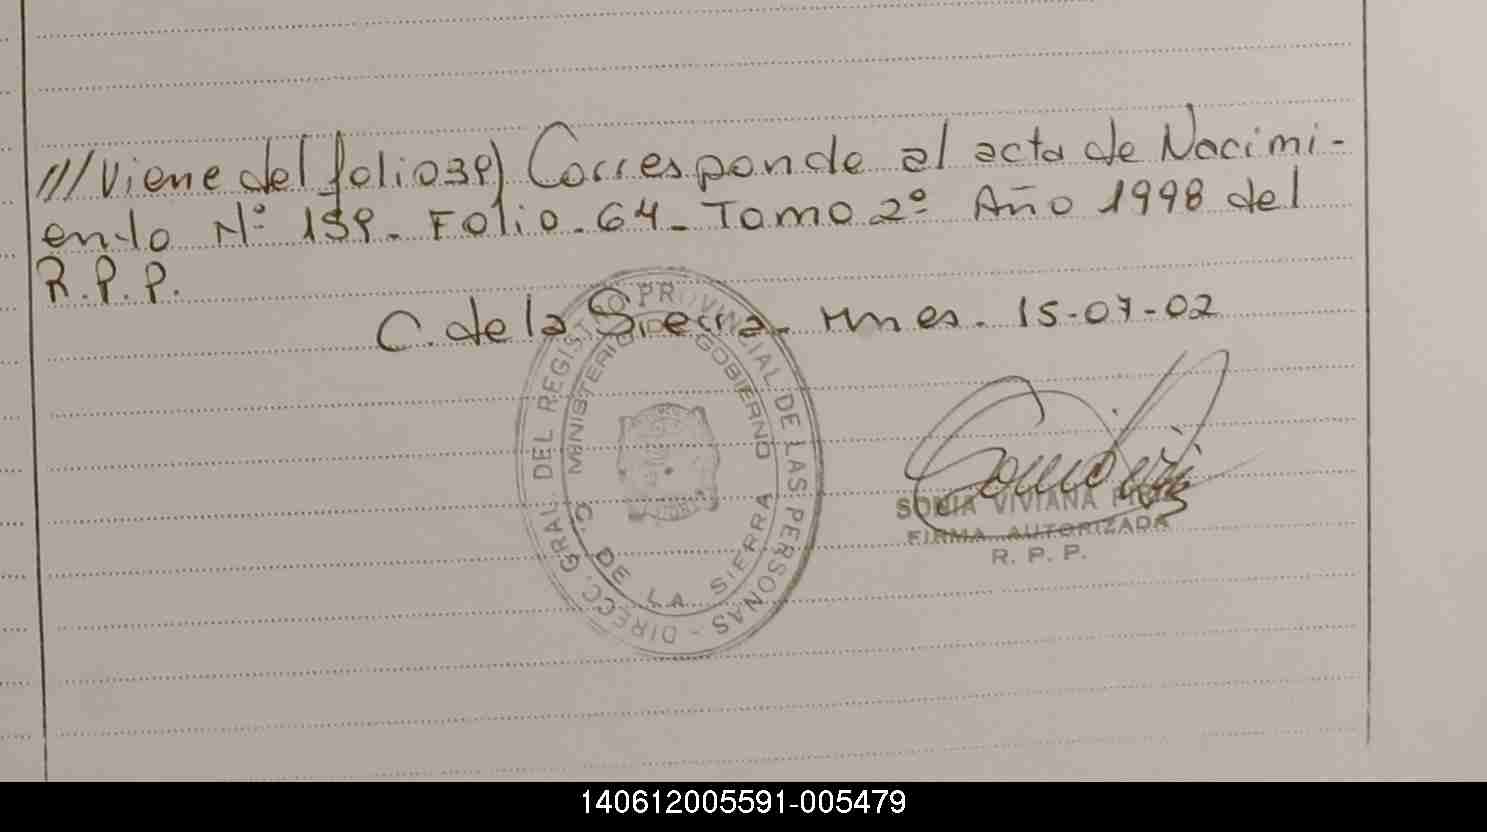 ///Viene del folio 39) Corresponde al acta de Nacimi-
ento Nº 159. Folio. 64. Tomo 2º Año 1998 del
R.P.P.
C. de la Sierra. Mnes. 15-07-02
DIRECC. GRAL. DEL REGISTRO PROVINCIAL DE LAS PERSONAS -
MINISTERIO DE GOBIERNO
C. DE LA SIERRA
SONIA VIVIANA
FIRMA AUTORIZADA
R. P. P.
140612005591-005479